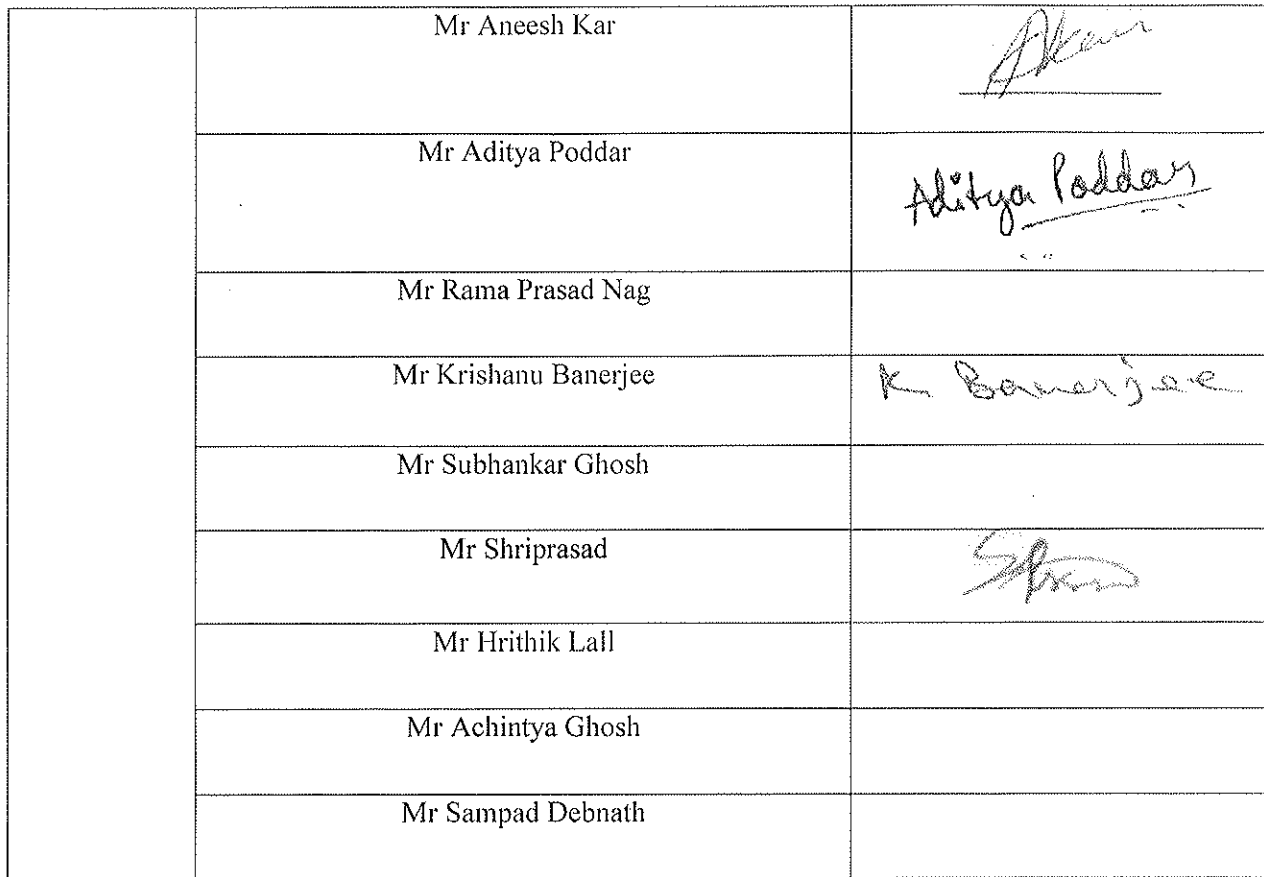 Mr Aneesh Kar
AKar
Mr Aditya Poddar
Aditya Poddar
Mr Rama Prasad Nag
Mr Krishanu Banerjee
K Banerjee
Mr Subhankar Ghosh
Mr Shriprasad
Mr Hrithik Lall
Mr Achintya Ghosh
Mr Sampad Debnath